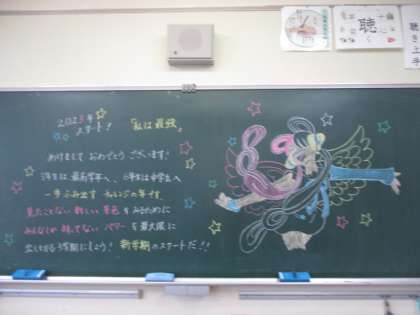 2023年
スタート！
「私は最強」
あけまして おめでとう ございます！
5年生は最高学年へ、6年生は中学生へ
一歩ふみ出す チャレンジの年です。
見たことない 新しい 景色 をみるために
みんなしか 持ってない パワー を最大限に
3学期にしましょう！ 新学期 のスタートだ！！
聴
聴き上手